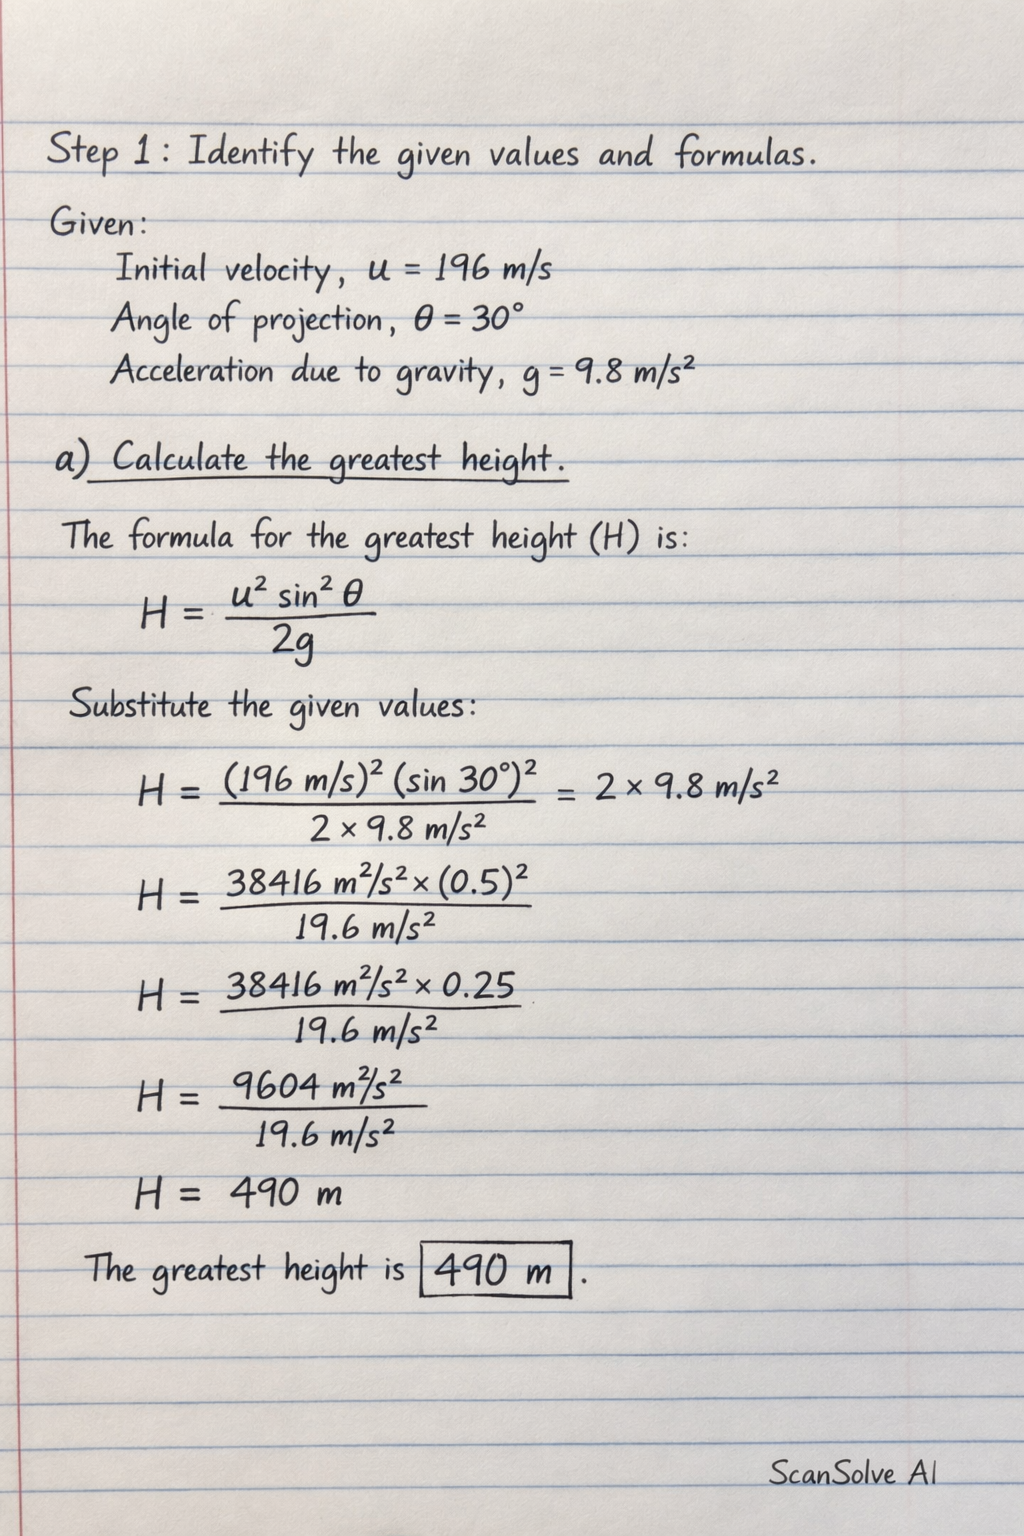 Step 1: Identify the given values and formulas.
Given:
Initial velocity, u = 196 m/s
Angle of projection, θ = 30°
Acceleration due to gravity, g = 9.8 m/s²
a) Calculate the greatest height.
The formula for the greatest height (H) is:
H = u² sin² θ / 2g
Substitute the given values:
H = (196 m/s)² (sin 30°)² / 2 × 9.8 m/s² = 2 × 9.8 m/s²
H = 38416 m²/s² × (0.5)² / 19.6 m/s²
H = 38416 m²/s² × 0.25 / 19.6 m/s²
H = 9604 m²/s² / 19.6 m/s²
H = 490 m
The greatest height is 490 m.
ScanSolve AI